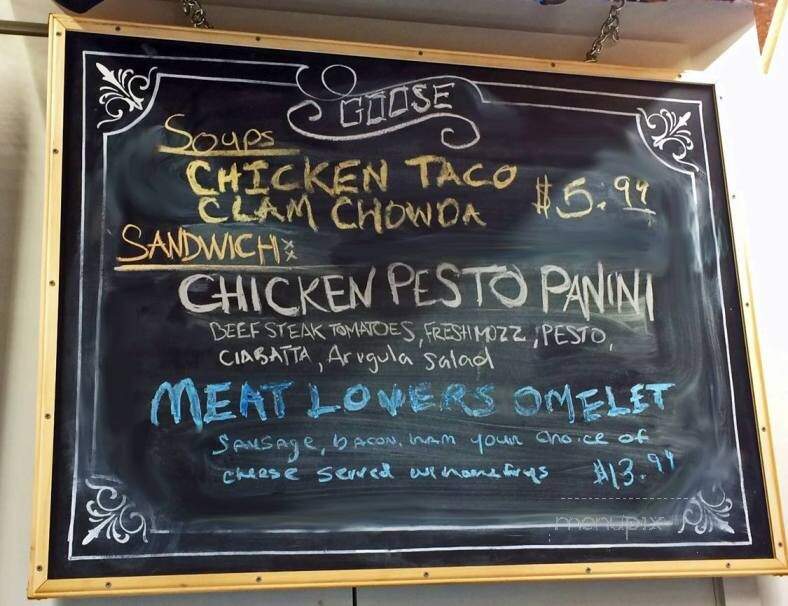 GOOSE
Soups
CHICKEN TACO
CLAM CHOWDA $5.99
SANDWICH:
CHICKEN PESTO PANINI
BEEF STEAK TOMATOES, FRESH MOZZ, PESTO,
CIABATTA, Arugula Salad
MEAT LOVERS OMELET
SAUSAge, bACON, ham your choice of
cheese served w/ homefrys $13.99
menupix